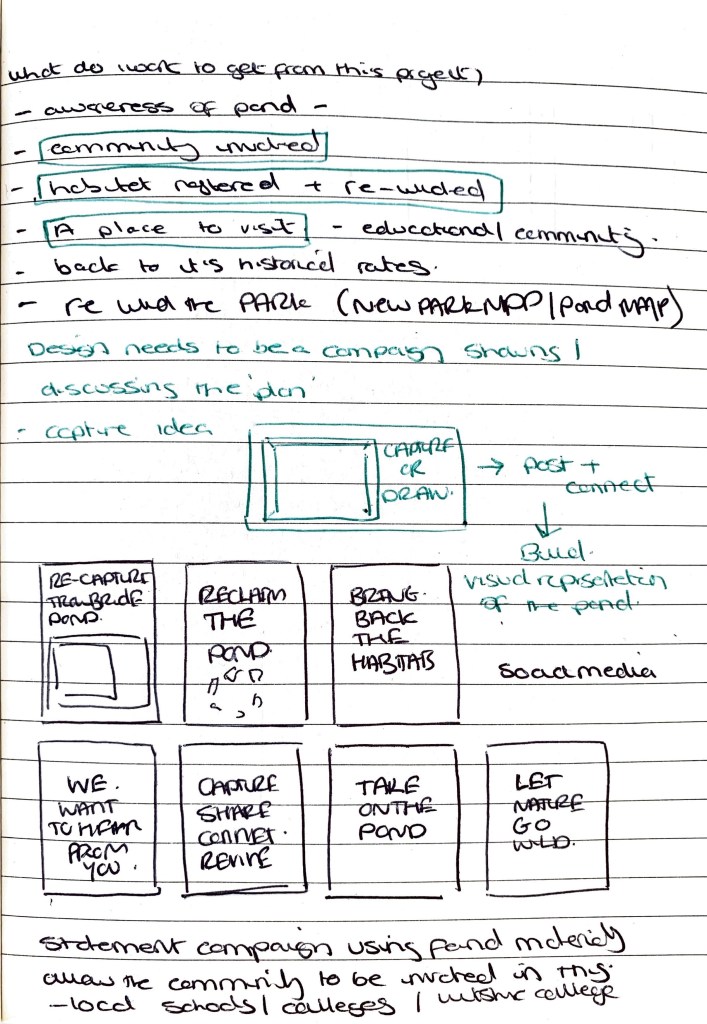 what do i want to get from this project)
- awareness of pond -
- community involved
- habitat restored + re-wilded
- A place to visit - educational / community.
- back to it's historical rates.
- re wild the PARK (NEW PARK MAP / Pond MAP)
Design needs to be a campaign showing /
discussing the 'plan'
- capture idea
CAPTURE
OR
DRAW.
→ post +
connect
Build
visual representation
of the pond.
RE-CAPTURE
TROWBRIDGE
POND.
RECLAIM
THE
POND.
BRING
BACK
THE
HABITAT
social media
WE.
WANT
TO HEAR
FROM
YOU.
CAPTURE
SHARE
CONNECT.
REVIVE
TAKE
ON THE
POND
LET
NATURE
GO
WILD.
statement campaign using found materials
allow the community to be involved in this.
- local schools / colleges / wiltshire college